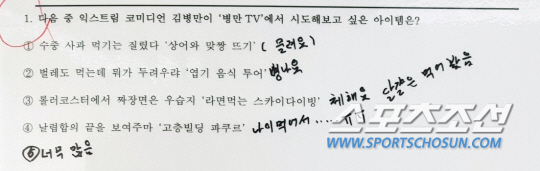 1. 다음 중 익스트림 코미디언 김병만이 '병만 TV'에서 시도해보고 싶은 아이템은?
① 수중 사과 먹기는 질렸다 '상어와 맞짱 뜨기' (물려욧)
② 벌레도 먹는데 뭐가 두려우랴 '엽기 음식 투어' 병나욧
③ 롤러코스터에서 짜장면은 우습지 '라면먹는 스카이다이빙' 체해욧 달걀은 먹어 봤음
④ 날렵함의 끝을 보여주마 '고층빌딩 파쿠르' 나이먹어서.... ㅠㅜ
⑤ 너무 많음
스포츠조선
WWW.SPORTSCHOSUN.COM